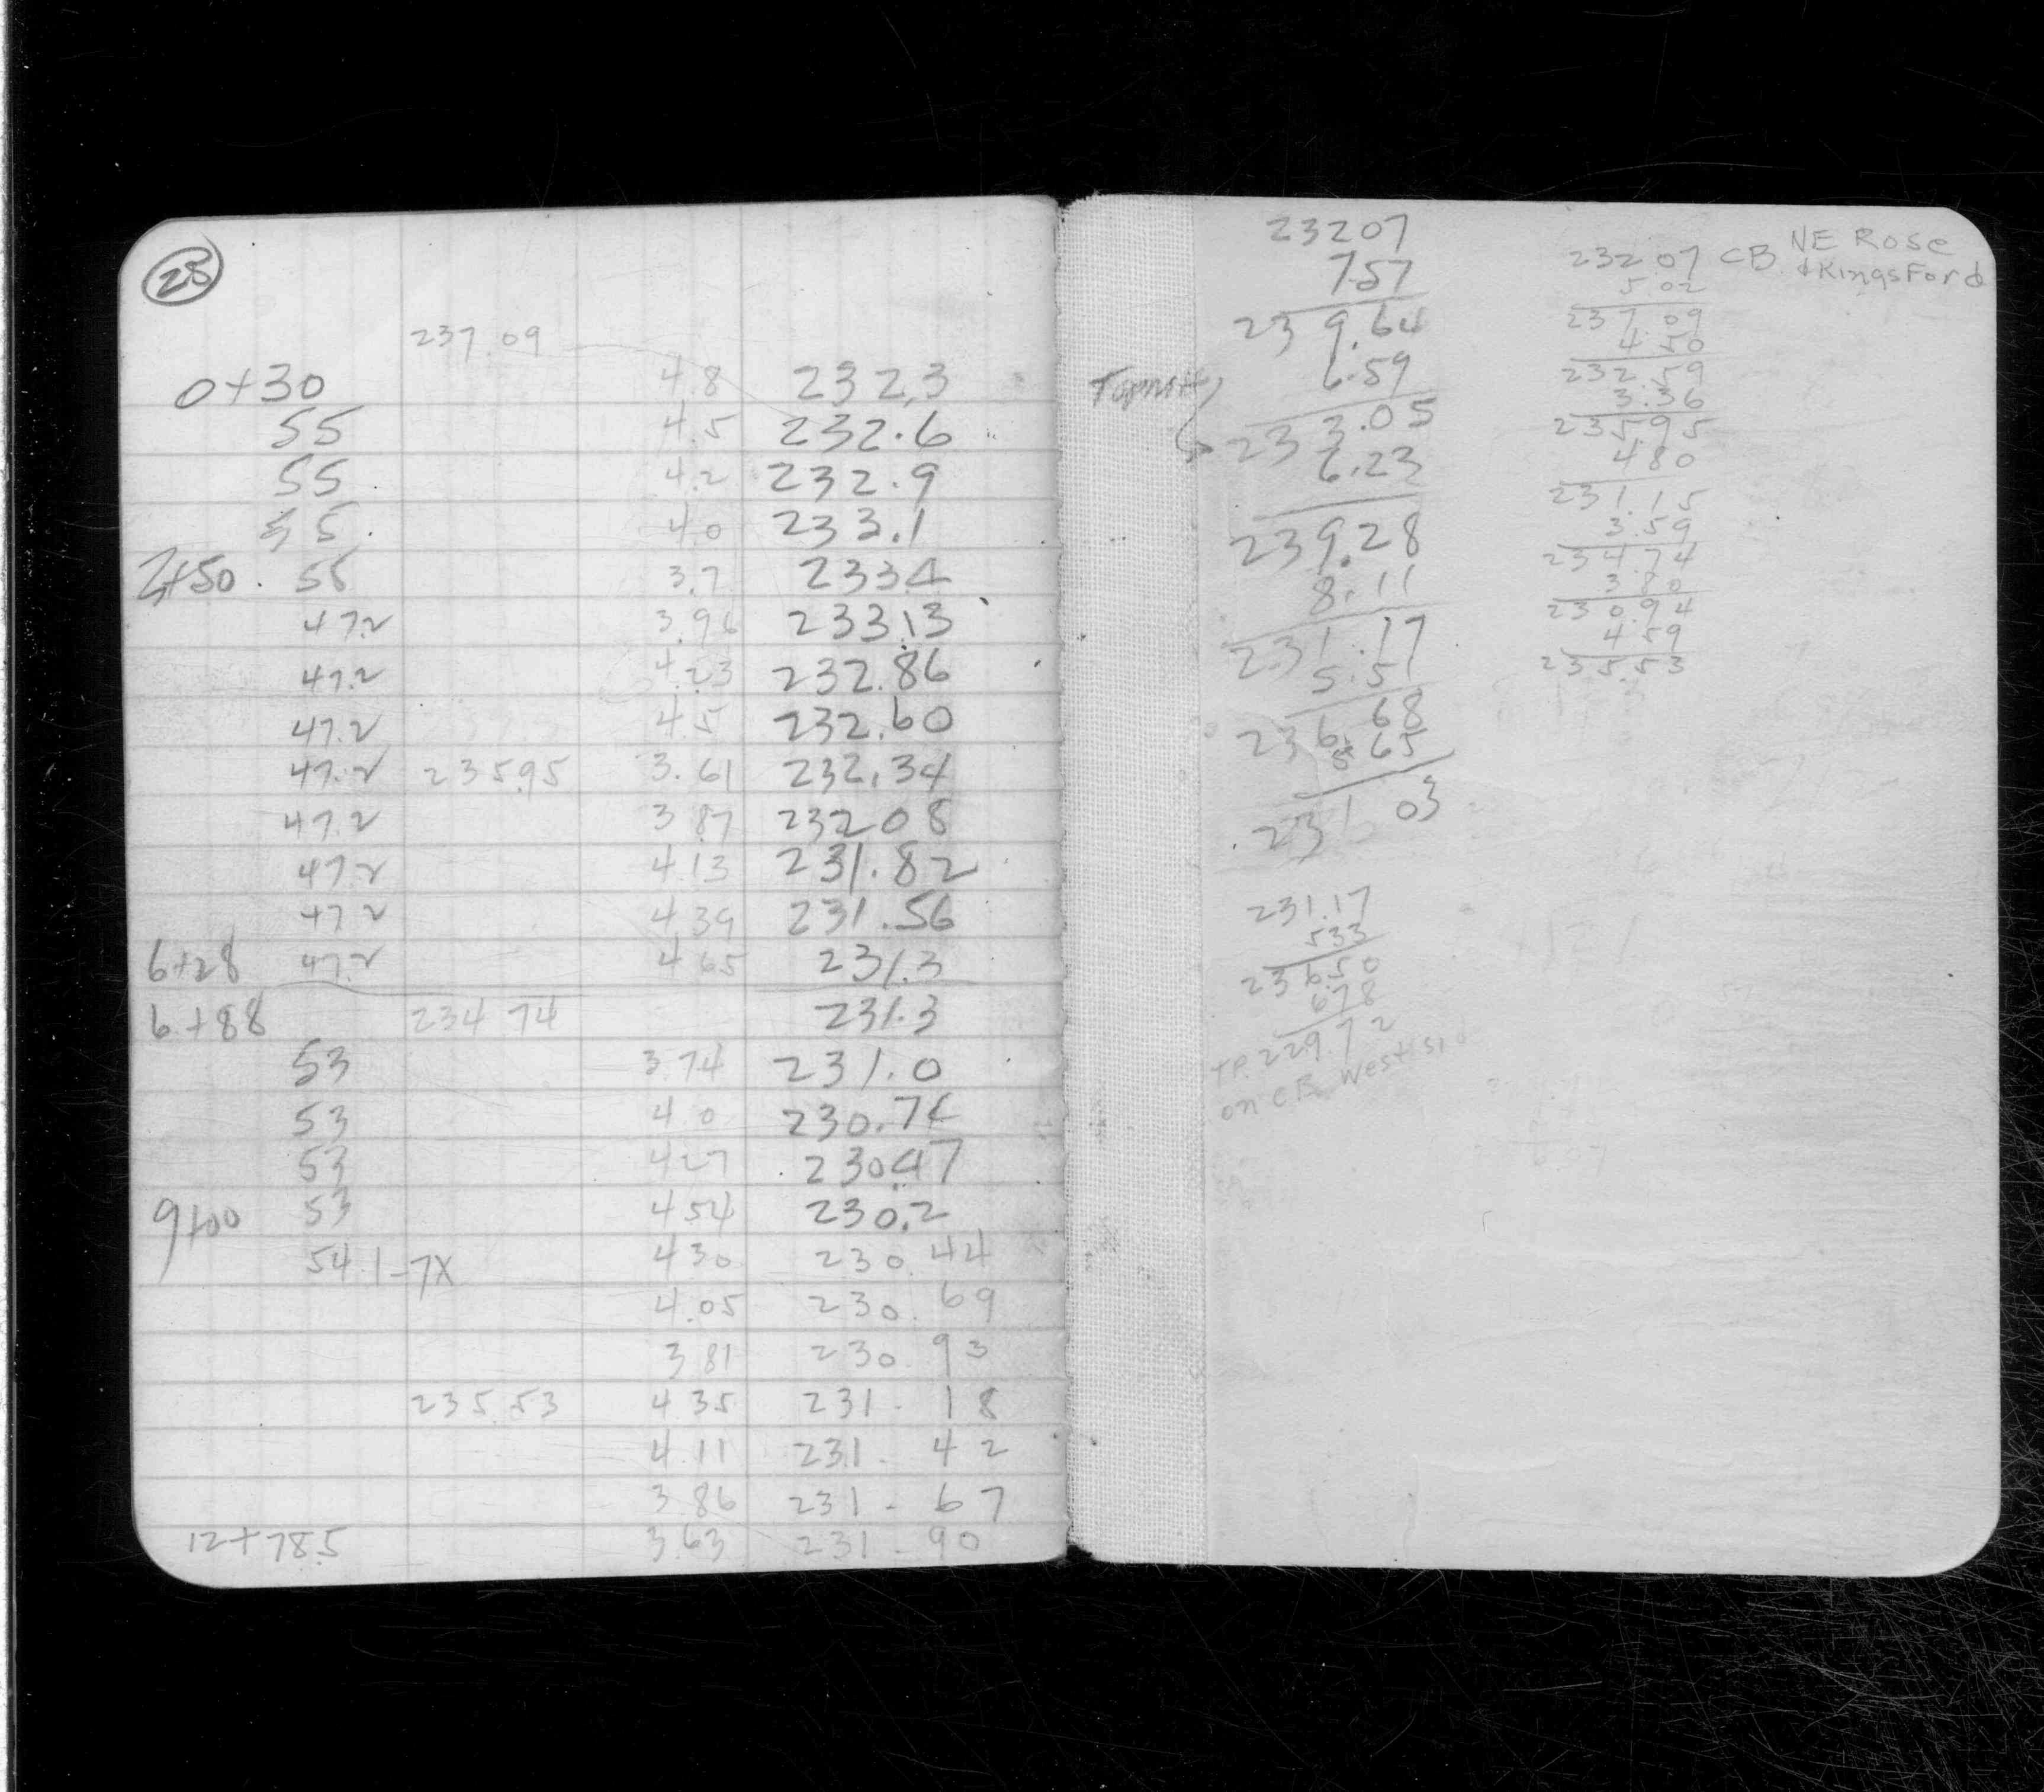 25
237.09
0+30 4.8 232.3
55 4.5 232.6
55 4.2 232.9
55 4.0 233.1
2+50 55 3.7 233.4
47.2 3.96 233.13
47.2 4.23 232.86
47.2 4.5 232.60
47.2 235.95 3.61 232.34
47.2 3 87 232 08
47.2 4.13 231.82
47.2 4.39 231.56
6+28 47.2 4 65 231.3
6+88 234 74 231.3
53 3.74 231.0
53 4.0 230.74
53 427 230.47
9+00 53 4 54 230.2
54.1-7X 4 30 230.44
4.05 230.69
3 81 230.93
235.53 4 35 231-18
4.11 231-42
3 86 231-67
12+78.5 3.63 231-90
23207
7.57
239.64
6.59
233.05
6.23
239.28
8.11
231.17
5.51
236.68
65
231 03
231.17
533
236.50
678
TP. 229.72
on CB West
NE Rose
& Kingsford
232 07 CB
5 02
237.09
4.50
232.59
3.36
235.95
480
231.15
3.59
234.74
3 80
230.94
4 59
235.53